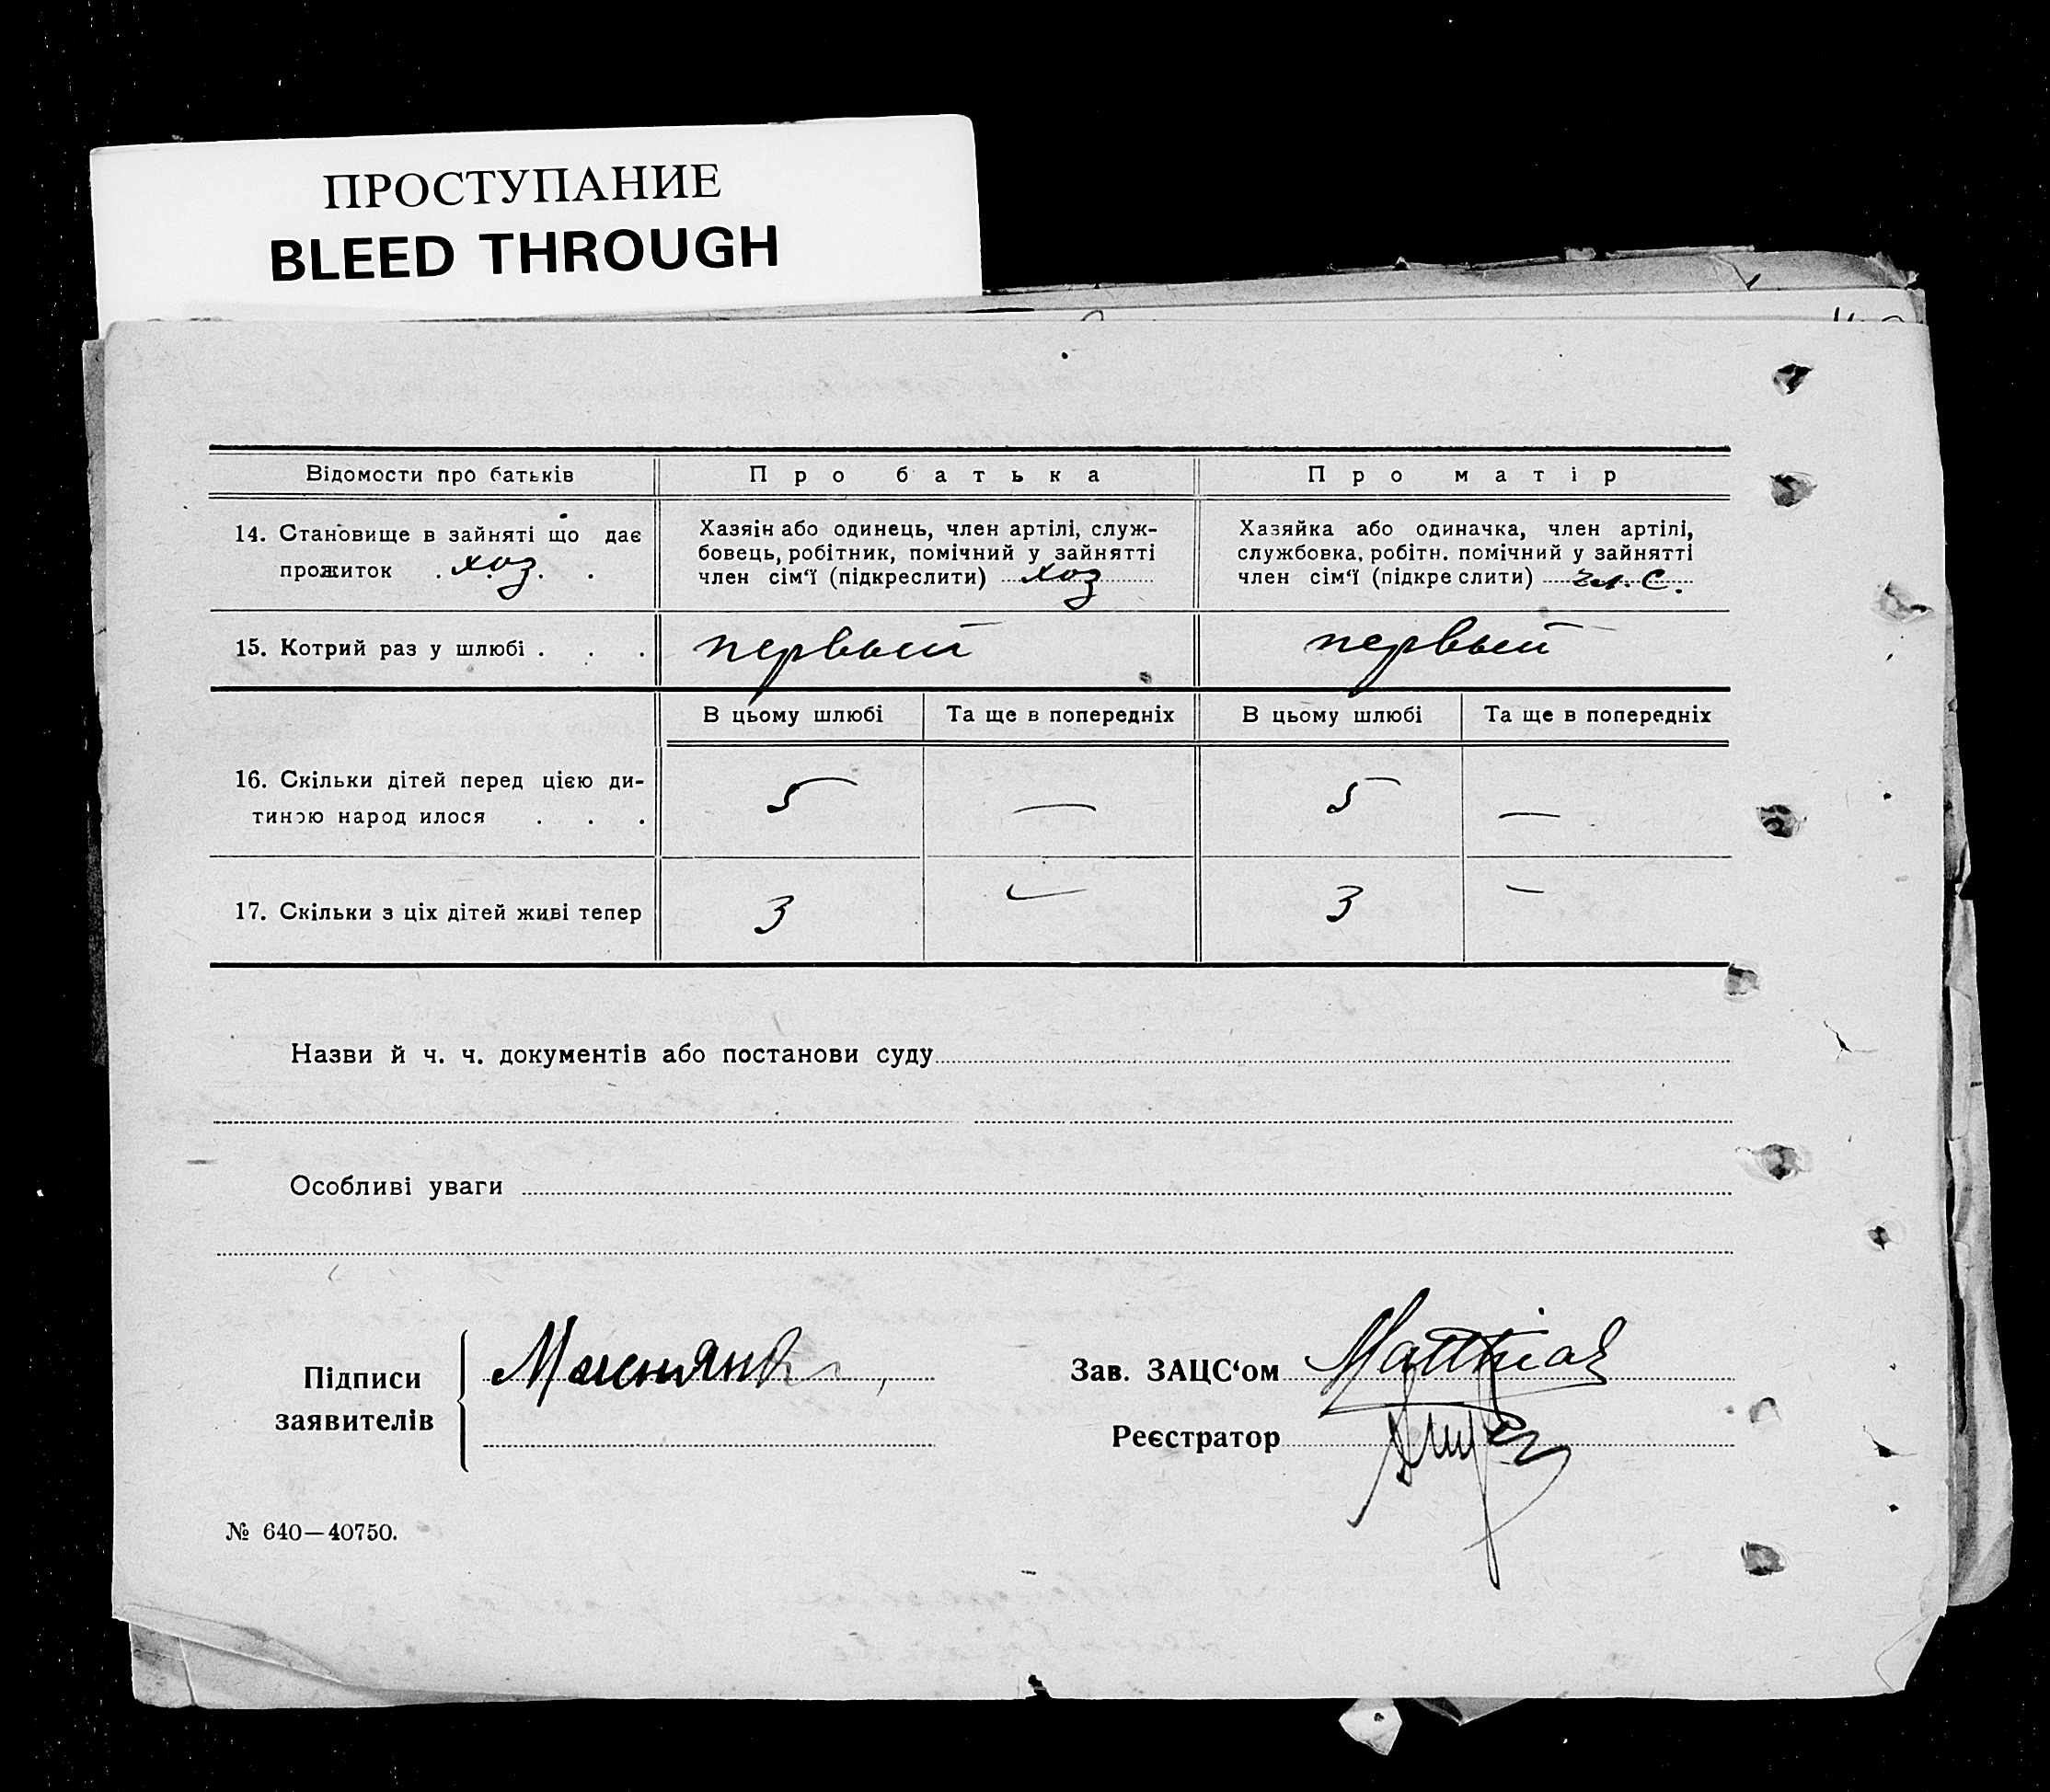 ПРОСТУПАНИЕ
BLEED THROUGH
Відомости про батьків
Про батька
Про матір
14. Становище в зайняті що дає
прожиток . хоз. .
Хазяін або одинець, член артілі, служ-
бовець, робітник, помічний у зайнятті
член сім‘ї (підкреслити) хоз
Хазяйка або одиначка, член артілі,
службовка, робітн. помічний у зайнятті
член сім‘ї (підкре слити) чл. с.
15. Котрий раз у шлюбі . . .
первый
первый
В цьому шлюбі
Та ще в попередніх
В цьому шлюбі
Та ще в попередніх
16. Скільки дітей перед цією ди-
тиною народ илося . . .
5
—
5
—
17. Скільки з ціх дітей живі тепер
3
—
3
—
Назви й ч. ч. документів або постанови суду
Особливі уваги
Підписи
заявителів
Зав. ЗАЦС‘ом Matthias
Реєстратор
№ 640—40750.